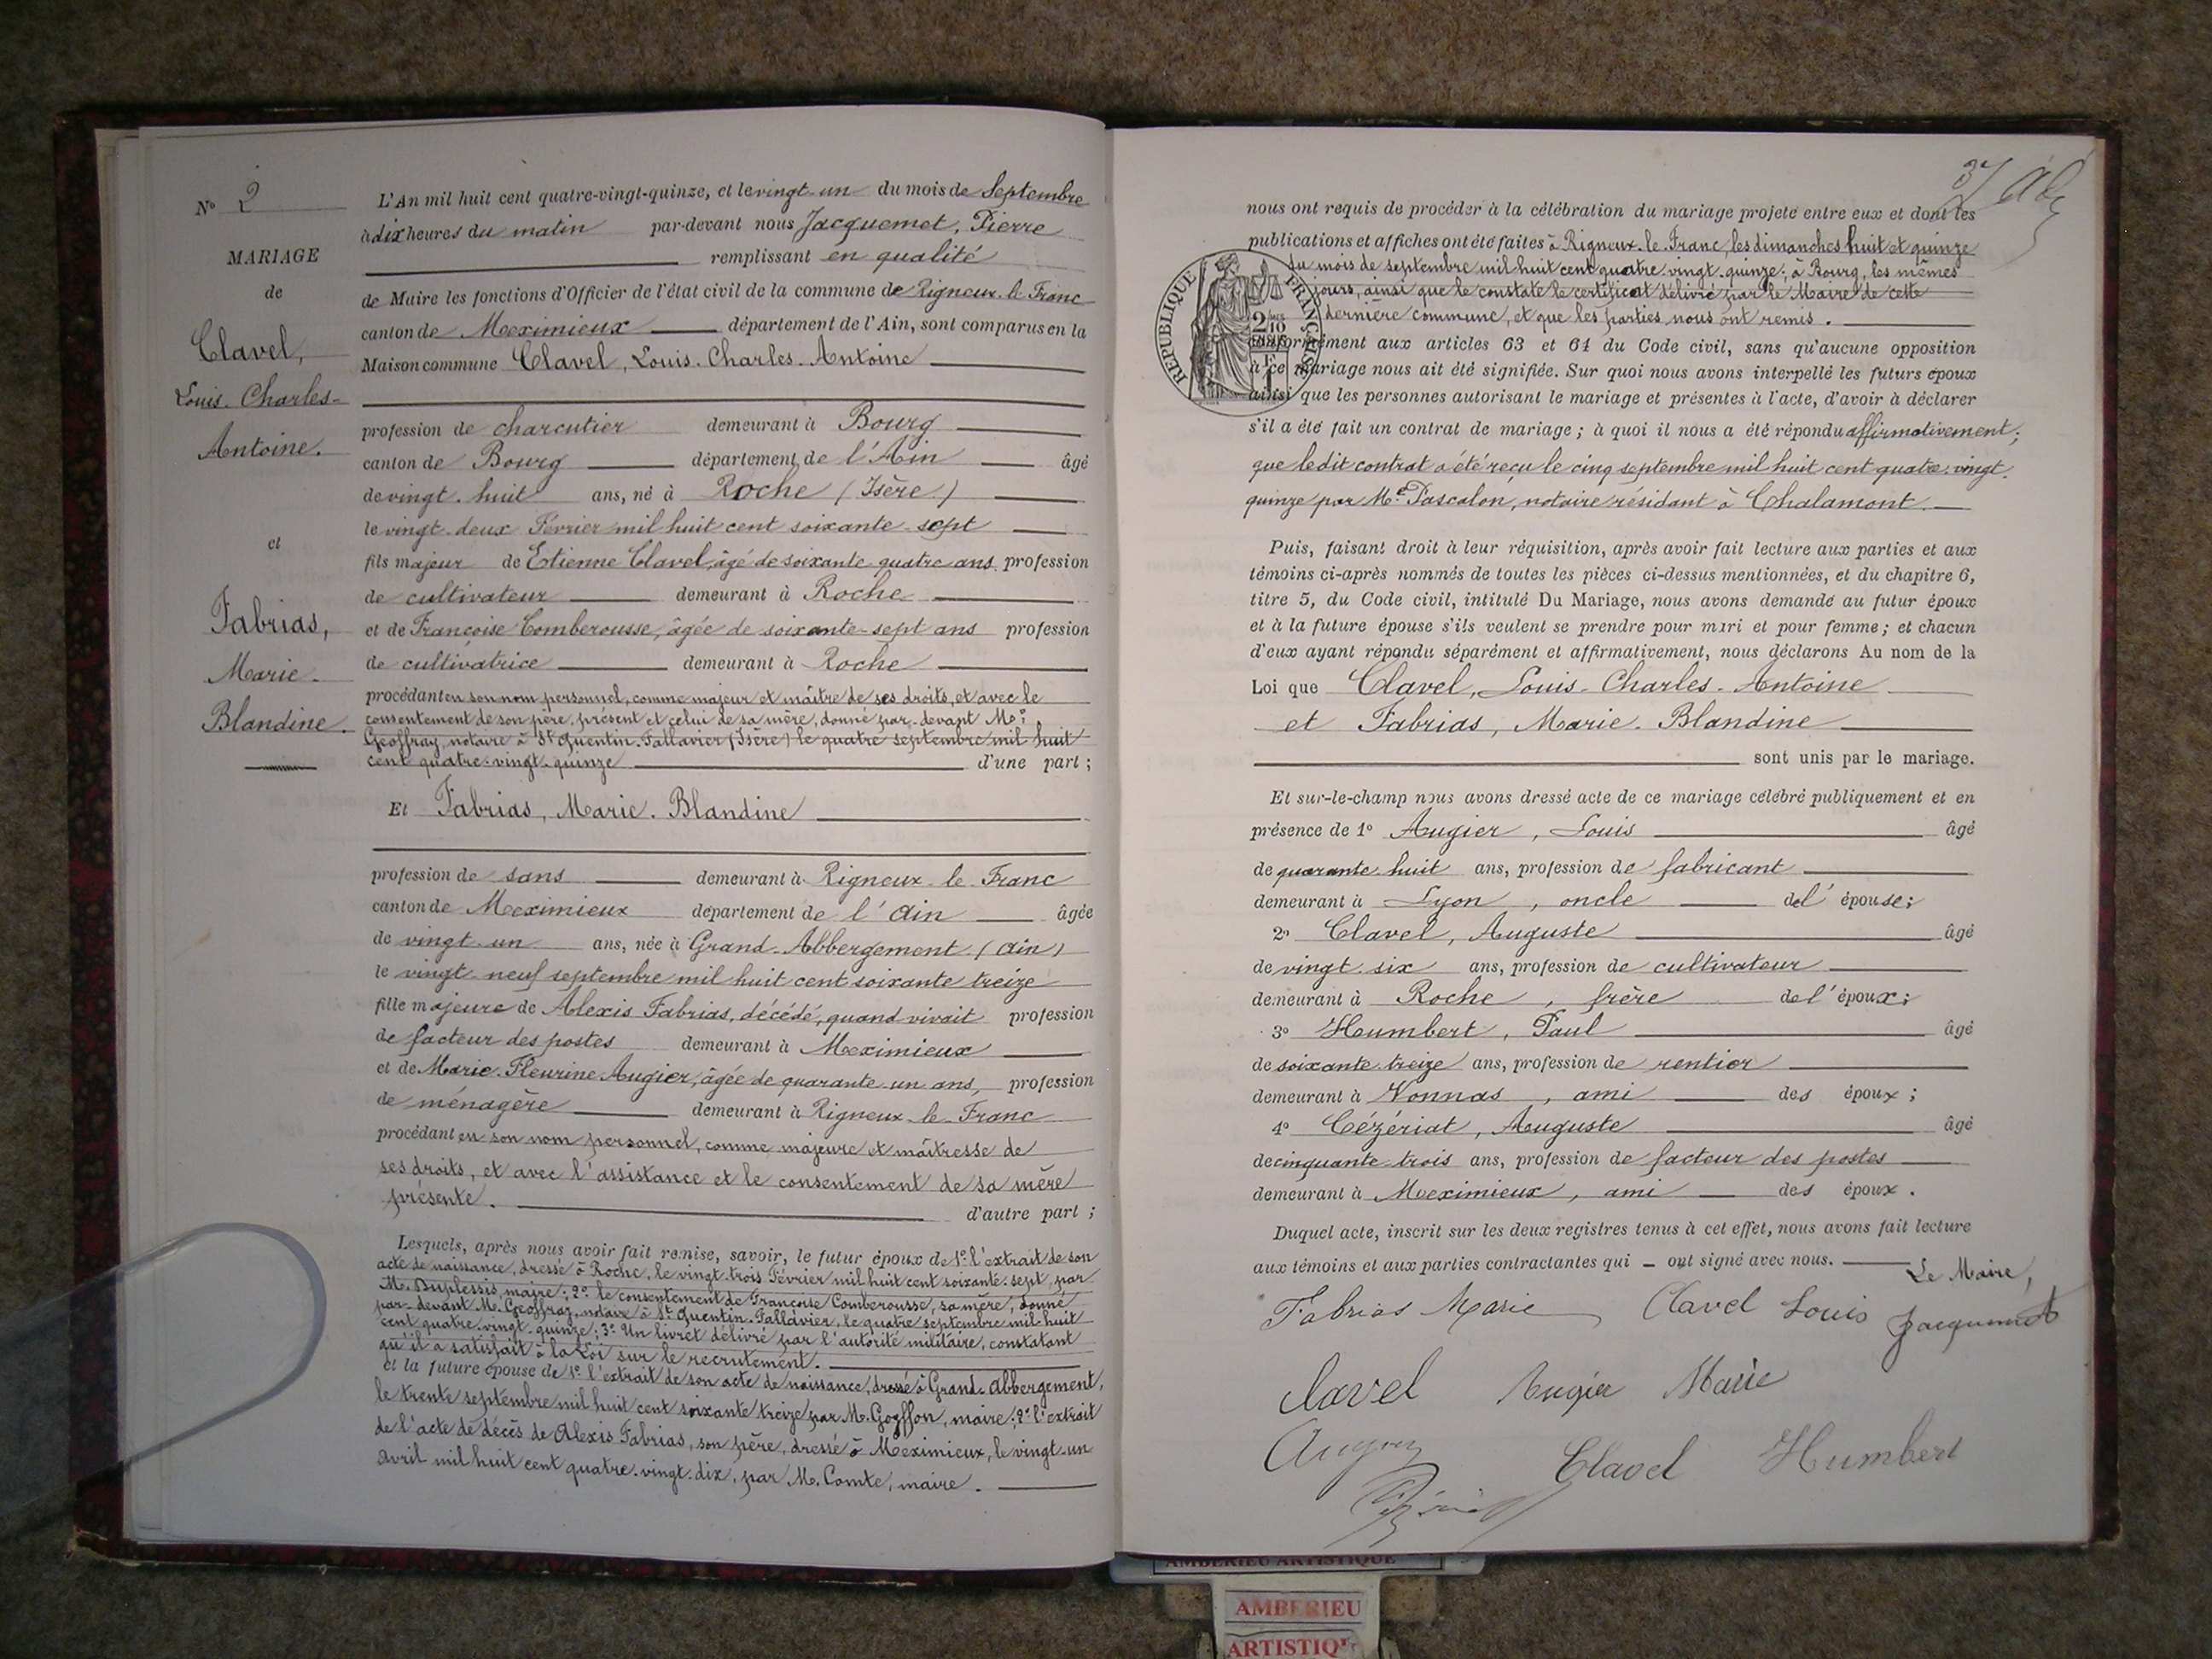 N° 2
MARIAGE
de
Clavel,
Louis-Charles-
Antoine.
et
Fabrias,
Marie-
Blandine.
L'An mil huit cent quatre-vingt-quinze, et le vingt-un du mois de Septembre
à dix heures du matin par-devant nous Jacquemet, Pierre
remplissant en qualité
de Maire les fonctions d'Officier de l'état civil de la commune de Rigneux-le-Franc
canton de Meximieux département de l'Ain, sont comparus en la
Maison commune Clavel, Louis-Charles-Antoine
profession de charcutier demeurant à Bourg
canton de Bourg département de l'Ain âgé
de vingt-huit ans, né à Roche (Isère)
le vingt-deux Février mil huit cent soixante-sept
fils majeur de Etienne Clavel, âgé de soixante-quatre ans, profession
de cultivateur demeurant à Roche
et de Françoise Comberousse, âgée de soixante-sept ans profession
de cultivatrice demeurant à Roche
procédant en son nom personnel, comme majeur et maître de ses droits, et avec le
consentement de son père, présent et celui de sa mère, donné par-devant Me
Geoffray, notaire à St Quentin-Fallavier (Isère) le quatre septembre mil huit
cent quatre-vingt-quinze d'une part ;
Et Fabrias, Marie-Blandine
profession de sans demeurant à Rigneux-le-Franc
canton de Meximieux département de l'Ain âgée
de vingt-un ans, née à Grand-Abbergement (Ain)
le vingt-neuf septembre mil huit cent soixante treize
fille majeure de Alexis Fabrias, décédé, quand vivait profession
de facteur des postes demeurant à Meximieux
et de Marie-Fleurine Augier, âgée de quarante-un ans, profession
de ménagère demeurant à Rigneux-le-Franc
procédant en son nom personnel, comme majeure et maîtresse de
ses droits, et avec l'assistance et le consentement de sa mère
présente. d'autre part ;
Lesquels, après nous avoir fait remise, savoir, le futur époux de 1° l'extrait de son
acte de naissance, dressé à Roche, le vingt-trois Février mil huit cent soixante-sept, par
M. Duplessis, maire ; 2° le consentement de Françoise Comberousse, sa mère, donné
par-devant Me Geoffray, notaire à St Quentin-Fallavier, le quatre septembre mil huit
cent quatre-vingt-quinze ; 3° Un livret délivré par l'autorité militaire, constatant
qu'il a satisfait à la Loi sur le recrutement.
et la future épouse de 1° l'extrait de son acte de naissance, dressé à Grand-Abbergement,
le trente septembre mil huit cent soixante treize par M. Goyffon, maire ; 2° l'extrait
de l'acte de décès de Alexis Fabrias, son père, dressé à Meximieux, le vingt-un
avril mil huit cent quatre-vingt-dix, par M. Comte, maire.
37
nous ont requis de procéder à la célébration du mariage projeté entre eux et dont les
publications et affiches ont été faites à Rigneux-le-Franc, les dimanches huit et quinze
du mois de septembre mil huit cent quatre-vingt-quinze ; à Bourg, les mêmes
jours, ainsi que le constate le certificat délivré par le Maire de cette
dernière commune, et que les parties nous ont remis.
REPUBLIQUE FRANÇAISE
conformément aux articles 63 et 64 du Code civil, sans qu'aucune opposition
à ce mariage nous ait été signifiée. Sur quoi nous avons interpellé les futurs époux
ainsi que les personnes autorisant le mariage et présentes à l'acte, d'avoir à déclarer
s'il a été fait un contrat de mariage ; à quoi il nous a été répondu affirmativement ;
que ledit contrat a été reçu le cinq septembre mil huit cent quatre-vingt-
quinze par Me Pascalon, notaire résidant à Chalamont.
Puis, faisant droit à leur réquisition, après avoir fait lecture aux parties et aux
témoins ci-après nommés de toutes les pièces ci-dessus mentionnées, et du chapitre 6,
titre 5, du Code civil, intitulé Du Mariage, nous avons demandé au futur époux
et à la future épouse s'ils veulent se prendre pour mari et pour femme ; et chacun
d'eux ayant répondu séparément et affirmativement, nous déclarons Au nom de la
Loi que Clavel, Louis-Charles-Antoine
et Fabrias, Marie-Blandine
sont unis par le mariage.
Et sur-le-champ nous avons dressé acte de ce mariage célébré publiquement et en
présence de 1° Augier, Louis âgé
de quarante-huit ans, profession de fabricant
demeurant à Lyon, oncle de l'épouse ;
2° Clavel, Auguste âgé
de vingt-six ans, profession de cultivateur
demeurant à Roche, frère de l'époux ;
3° Humbert, Paul âgé
de soixante-treize ans, profession de rentier
demeurant à Vonnas, ami des époux ;
4° Cézériat, Auguste âgé
de cinquante-trois ans, profession de facteur des postes
demeurant à Meximieux, ami des époux.
Duquel acte, inscrit sur les deux registres tenus à cet effet, nous avons fait lecture
aux témoins et aux parties contractantes qui ont signé avec nous.
Le Maire,
Fabrias Marie Clavel Louis Jacquemet
Clavel Augier Marie
Augier Clavel Humbert
AMBERIEU ARTISTIQUE
AMBERIEU
ARTISTIQU